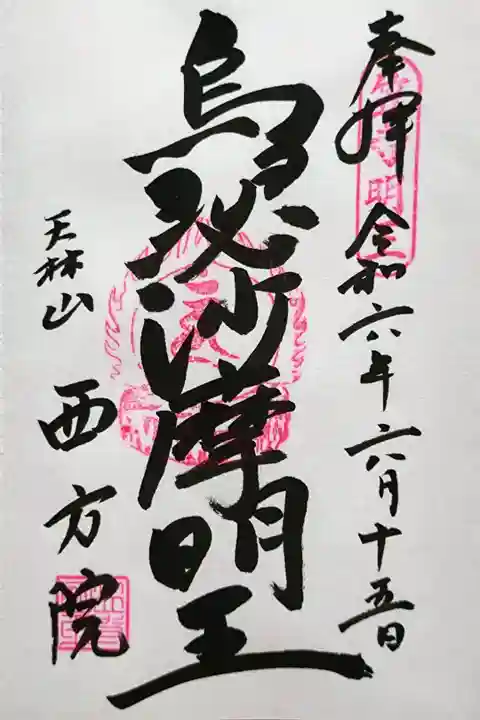 奉拝 令和六年六月十五日
烏瑟沙摩明王
天林山 西方院